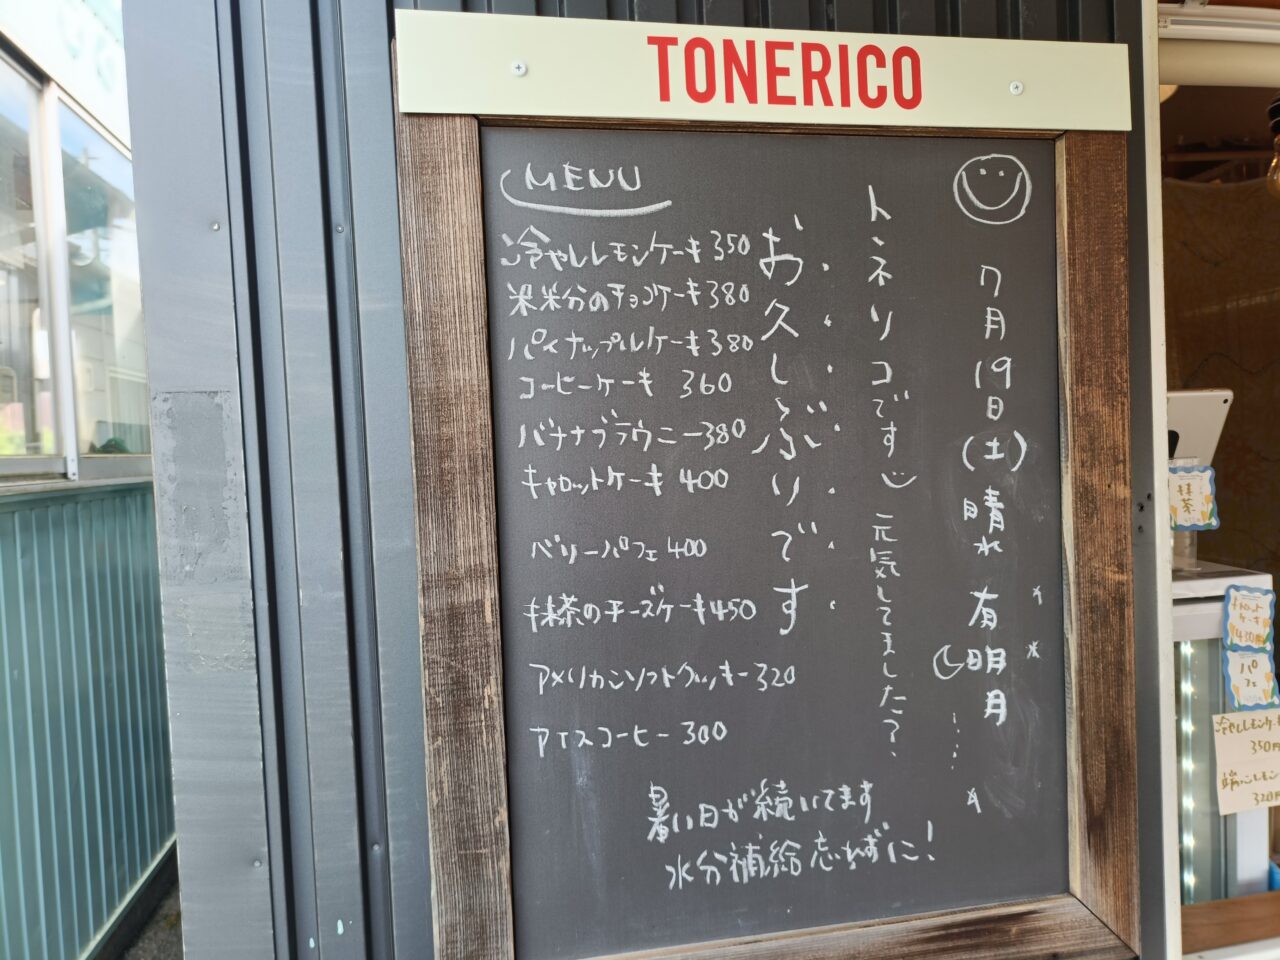 TONERICO
MENU
冷やしレモンケーキ 350
米米分のチョコケーキ 380
パイナップルケーキ 380
コーヒーケーキ 360
バナナブラウニー 380
キャロットケーキ 400
ベリーパフェ 400
抹茶のチーズケーキ 450
アメリカンソフトクッキー 320
アイスコーヒー 300
7月19日(土)晴れ 有明月
トネリコです 元気してました?
お久しぶりです
暑い日が続いてます
水分補給忘れずに!
抹茶
キャロットケーキ
430円
パフェ
冷やしレモンケ
350円
レモン
320円